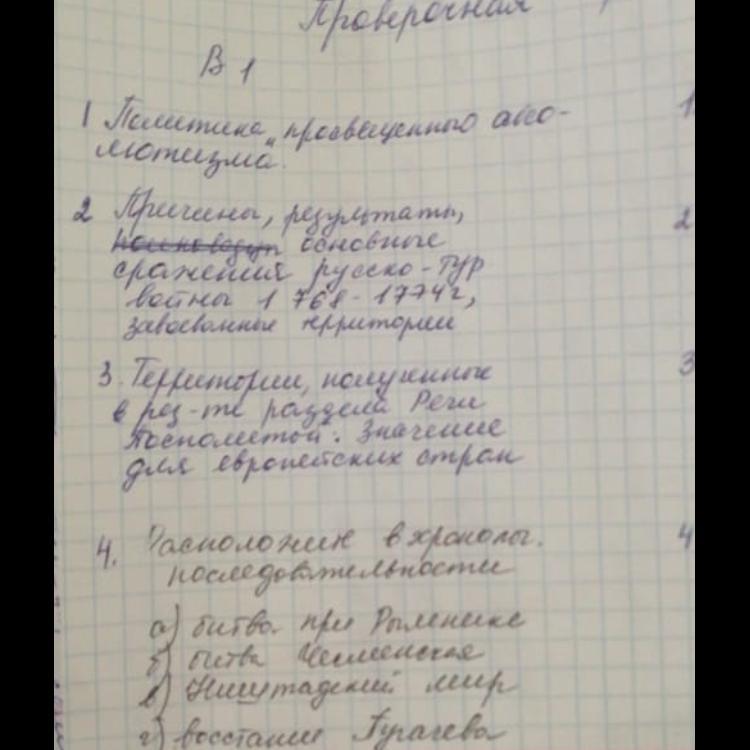 Проверочная
В 1
1 Политика „просвещенного абсо-
лютизма"
2 Причины, результаты,
основные
сражения русско-тур
войны 1768-1774г,
завоеванные территории
3. Территории, полученные
в рез-те раздела Речи
Посполитой. Значение
для европейских стран
4. Расположите в хронолог.
последовательности
а) битва при Рымнике
б) битва Чесменская
в) Ништадский мир
г) восстание Пугачева
1
2
3
4